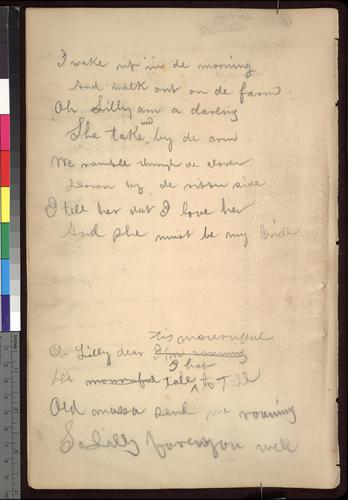 I wake up in de morning
And walk out on de farm
Oh Lilly am a darling
She take me by de arm
We ramble through de clover
Down by de ribber side
I tell her dat I love her
And she must be my bride
tis mournful
Oh Lilly dear I'm roaming
I hab
mournful tale to Tell
Old massa send me roaming
So Lilly fare you well